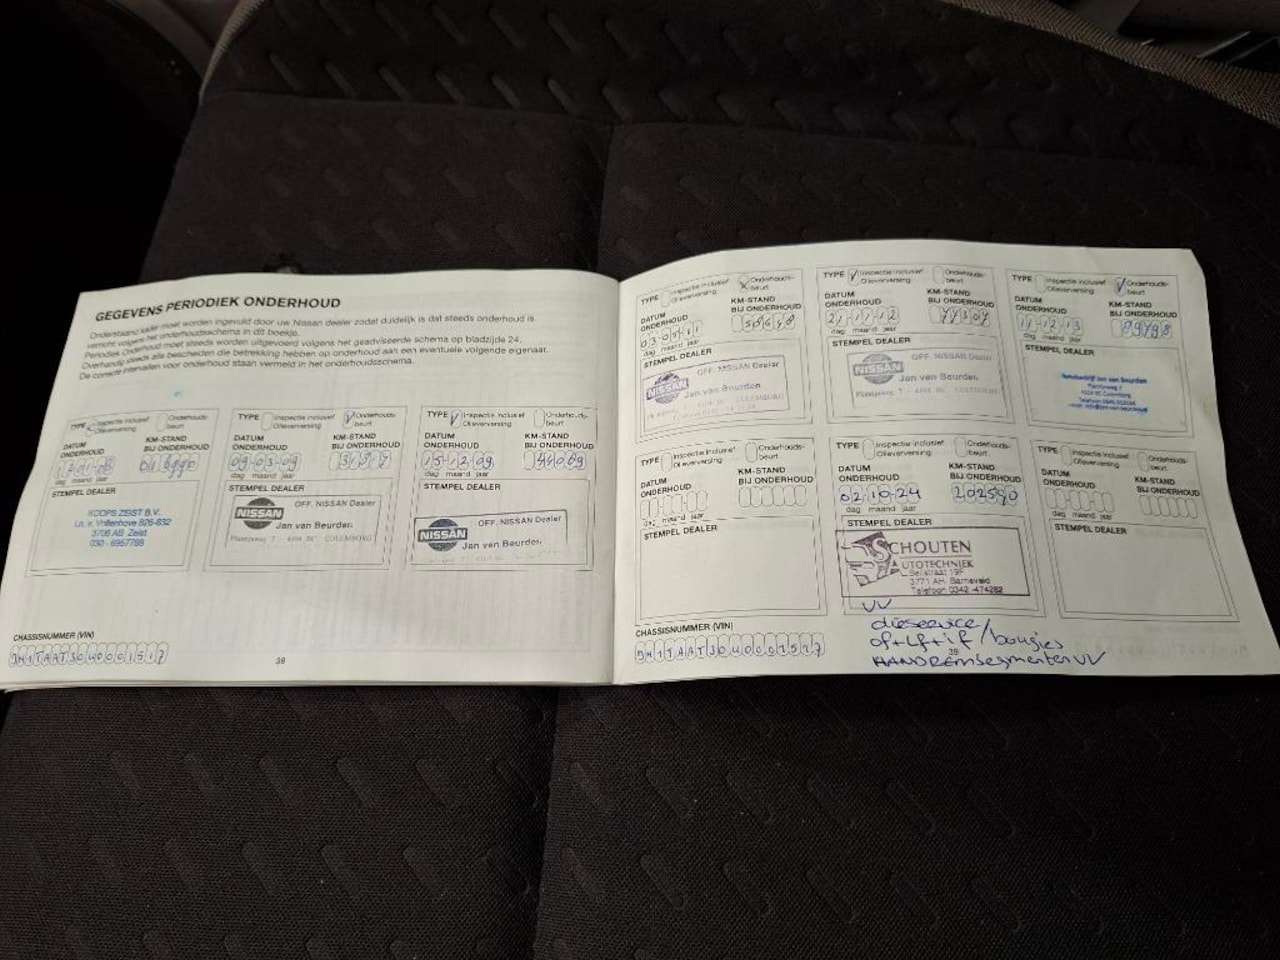 GEGEVENS PERIODIEK ONDERHOUD
Onderstaand kader moet worden ingevuld door uw Nissan dealer zodat duidelijk is dat steeds onderhoud is
verricht volgens het onderhoudsschema in dit boekje.
Periodiek Onderhoud moet steeds worden uitgevoerd volgens het geadviseerde schema op bladzijde 24.
Overhandig steeds alle bescheiden die betrekking hebben op onderhoud aan een eventuele volgende eigenaar.
De correcte intervallen voor onderhoud staan vermeld in het onderhoudsschema.
TYPE Inspectie inclusief Olieverversing Onderhouds-beurt
DATUM ONDERHOUD
KM-STAND BIJ ONDERHOUD
dag maand jaar
STEMPEL DEALER
KOOPS ZEIST B.V.
Ln. v. Vollenhove 826-832
3706 AB Zeist
030 - 6957788
TYPE Inspectie inclusief Olieverversing Onderhouds-beurt
DATUM ONDERHOUD 09-03-09
KM-STAND BIJ ONDERHOUD
dag maand jaar
STEMPEL DEALER
NISSAN
OFF. NISSAN Dealer
Jan van Beurden.
Plantijnweg 7 - 4104 BC CULEMBORG
TYPE Inspectie inclusief Olieverversing Onderhouds-beurt
DATUM ONDERHOUD 15-12-09
KM-STAND BIJ ONDERHOUD 44069
dag maand jaar
STEMPEL DEALER
NISSAN
OFF. NISSAN Dealer
Jan van Beurden.
CHASSISNUMMER (VIN)
38
TYPE Inspectie inclusief Olieverversing Onderhouds-beurt
DATUM ONDERHOUD 03-05-11
KM-STAND BIJ ONDERHOUD
dag maand jaar
STEMPEL DEALER
NISSAN
OFF. NISSAN Dealer
Jan van Beurden
CULEMBORG
TYPE Inspectie inclusief Olieverversing Onderhouds-beurt
DATUM ONDERHOUD 21-11-12
KM-STAND BIJ ONDERHOUD 77307
dag maand jaar
STEMPEL DEALER
NISSAN
OFF. NISSAN Dealer
Jan van Beurden.
Plantijnweg 7 - 4104 BC CULEMBORG
TYPE Inspectie inclusief Olieverversing Onderhouds-beurt
DATUM ONDERHOUD 11-12-13
KM-STAND BIJ ONDERHOUD
dag maand jaar
STEMPEL DEALER
Autobedrijf Jan van Beurden
Plantijnweg 7
4104 BC Culemborg
TYPE Inspectie inclusief Olieverversing Onderhouds-beurt
DATUM ONDERHOUD
KM-STAND BIJ ONDERHOUD
dag maand jaar
STEMPEL DEALER
TYPE Inspectie inclusief Olieverversing Onderhouds-beurt
DATUM ONDERHOUD 02-10-24
KM-STAND BIJ ONDERHOUD 202590
dag maand jaar
STEMPEL DEALER
SCHOUTEN
AUTOTECHNIEK
3771 AH Barneveld
Telefoon 0342-474282
TYPE Inspectie inclusief Olieverversing Onderhouds-beurt
DATUM ONDERHOUD
KM-STAND BIJ ONDERHOUD
dag maand jaar
STEMPEL DEALER
CHASSISNUMMER (VIN)
39
VV
olieservice/
of+Lf+if/bougies
HANDRemsegmenten VV